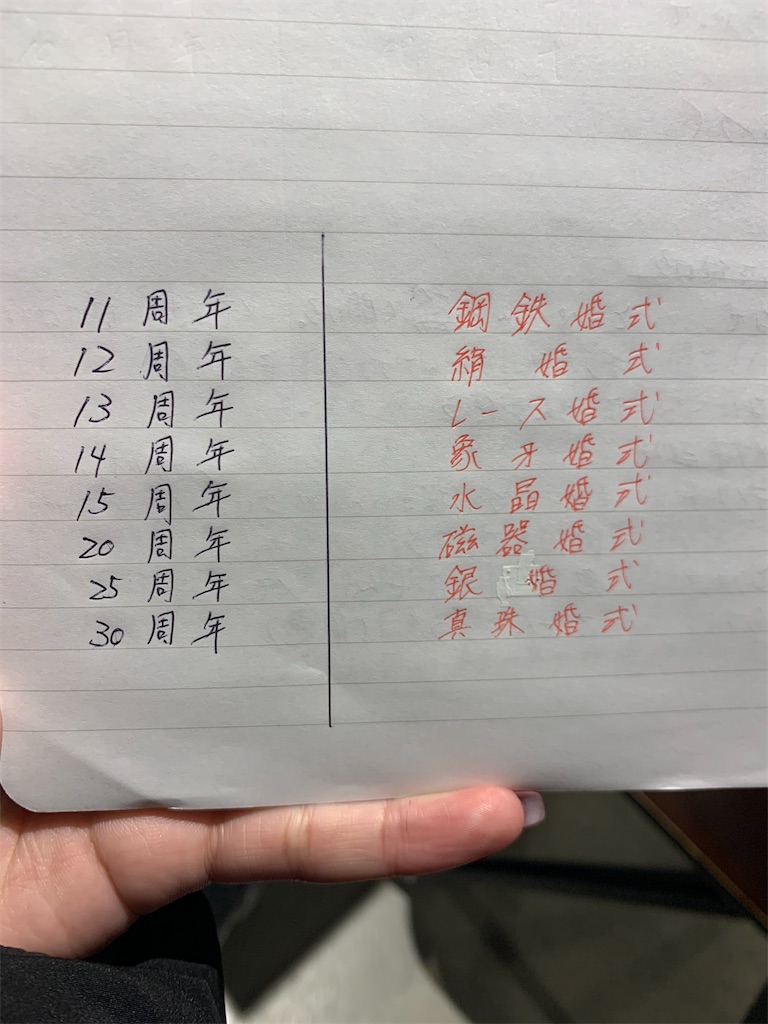 11周年 鋼鉄婚式
12周年 絹婚式
13周年 レース婚式
14周年 象牙婚式
15周年 水晶婚式
20周年 磁器婚式
25周年 銀婚式
30周年 真珠婚式